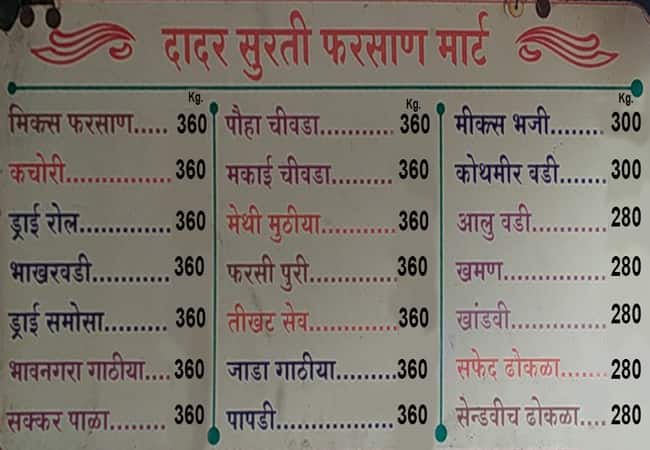 दादर सुरती फरसाण मार्ट
Kg.
मिक्स फरसाण..... 360
कचोरी............... 360
ड्राई रोल............. 360
भाखरवडी........... 360
ड्राई समोसा........ 360
भावनगरा गाठीया.... 360
सक्कर पाळा........ 360
Kg.
पौहा चीवडा.......... 360
मकाई चीवडा......... 360
मेथी मुठीया........... 360
फरसी पुरी............ 360
तीखट सेव............ 360
जाडा गाठीया......... 360
पापडी................ 360
Kg.
मीक्स भजी........ 300
कोथमीर वडी....... 300
आलु वडी........... 280
खमण.............. 280
खांडवी............. 280
सफेद ढोकळा....... 280
सेन्डवीच ढोकळा.... 280